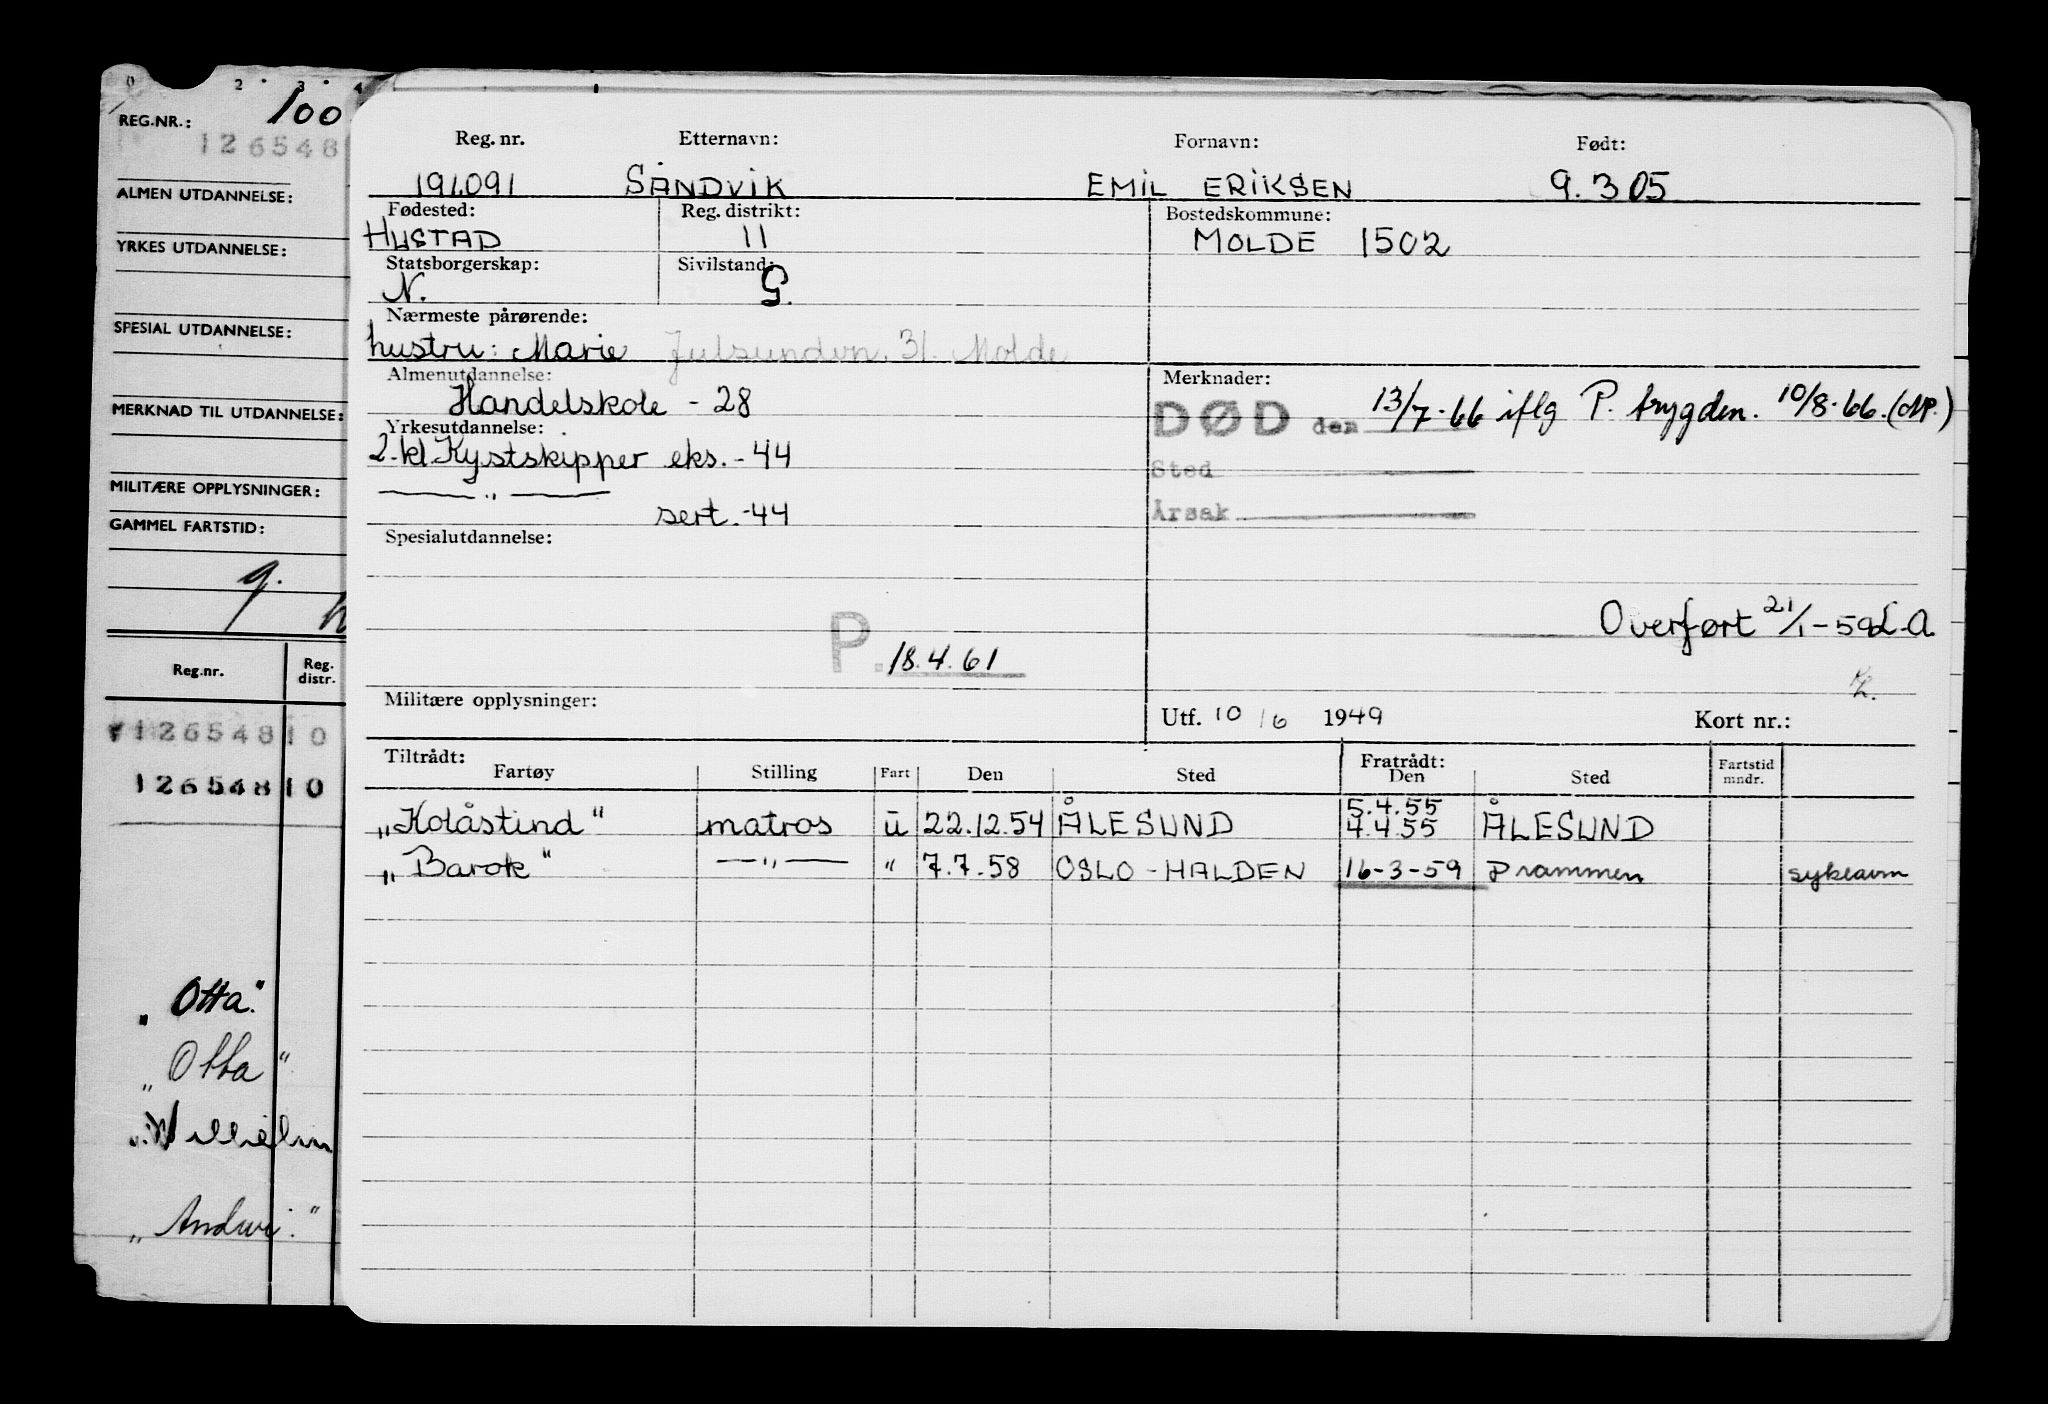 0 2 3 4
REG.NR.: 100
126548
ALMEN UTDANNELSE:
YRKES UTDANNELSE:
SPESIAL UTDANNELSE:
MERKNAD TIL UTDANNELSE:
MILITÆRE OPPLYSNINGER:
GAMMEL FARTSTID:
9.
Reg.nr. Reg. distr.
126548 10
126548 10
„Otta“
„Otta“
„Andwi“
Reg. nr. Etternavn: Fornavn: Født:
191091 SANDVIK EMIL ERIKSEN 9.3 05
Fødested: Reg. distrikt: Bostedskommune:
HUSTAD 11 MOLDE 1502
Statsborgerskap: Sivilstand:
N. G.
Nærmeste pårørende:
hustru: Marie Julsundvn. 31. Molde
Almenutdannelse: Merknader:
Handelskole - 28 DØD den 13/7-66 iflg P. trygden. 10/8-66.
Yrkesutdannelse:
2.kl.Kystskipper eks. - 44 Sted
— „ — Årsak
sert. - 44
Spesialutdannelse:
Overført 21/1-59 L.A.
P. 18.4.61
Militære opplysninger: Utf. 10/6 1949 Kort nr.:
Tiltrådt: Fratrådt:
Fartøy Stilling Fart Den Sted Den Sted Fartstid mndr.
5.4.55
„Kolåstind“ matros u 22.12.54 ÅLESUND 4.4.55 ÅLESUND
„Barok“ — „ — “ 7.7.58 OSLO - HALDEN 16-3-59 Drammen sykeavm